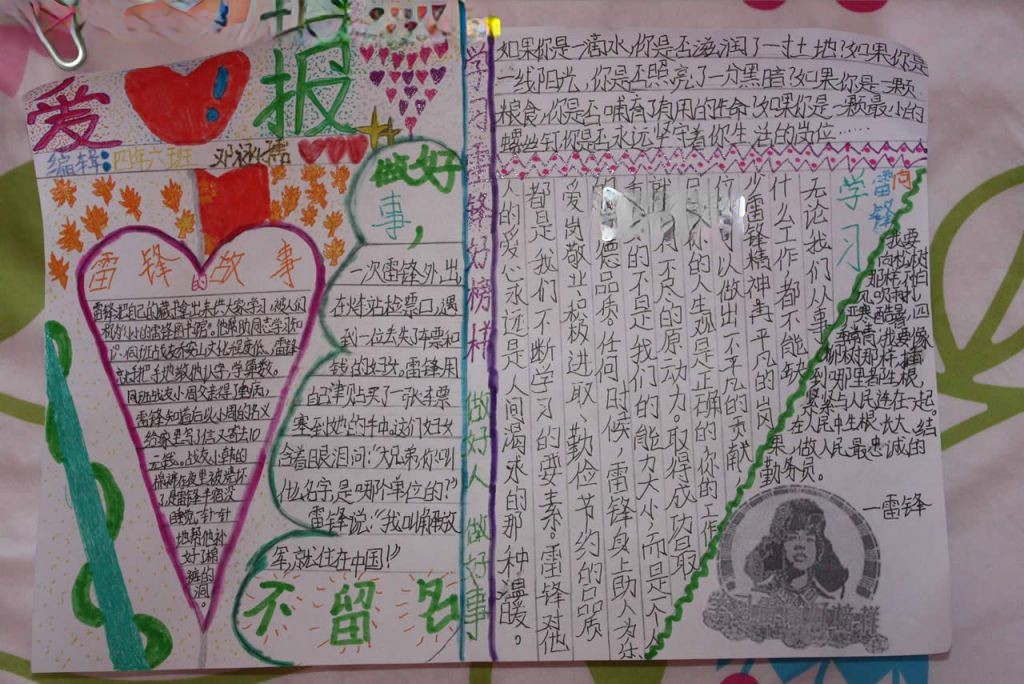 爱 报
编辑:四年六班
雷锋的故事
同班战友小周父亲得重病,
雷锋知道后以小周的名义
给家里写了信又寄去10
元钱。战友小韩的
棉裤在夜里被烧坏
地帮他补
好了棉
裤的
洞。
做好
事,
一次雷锋外出
在火车站检票口,遇
到一位丢失了车票和
钱的妇女。雷锋用
自己津贴买了一张车票
塞到她的手中,这们妇女
含着眼泪问:“大兄弟你叫
什么名字,是哪个单位的?”
雷锋说:“我叫解放
军,就住在中国!”
不留名
学习雷锋好榜样 做好人 做好事
如果你是一滴水,你是否滋润了一寸土地?如果你是
一线阳光,你是否照亮了一分黑暗?如果你是一颗
粮食,你是否哺育了有用的生命?如果你是一颗最小的
螺丝钉,你是否永远坚守着你生活的岗位……
向雷锋
学习
无论我们从事
什么工作都不能缺
少雷锋精神,平凡的岗
位可以做出不平凡的贡献
你的人生观是正确的,你的工作
就有不尽的原动力。取得成功最
的不是我们的能力大小,而是个人
品德品质。任何时候,雷锋身上助人为乐、
爱岗敬业、积极进取、勤俭节约的品质
都是我们不断学习的要素。雷锋对他
人的爱心永远是人间渴求的那种温暖。
我要
向松树
那样,不怕
风吹雨
到哪里都生根,
紧紧与人民连在一起。
在人民中生根、长大、结
果,做人民最忠诚的
勤务员。
—雷锋